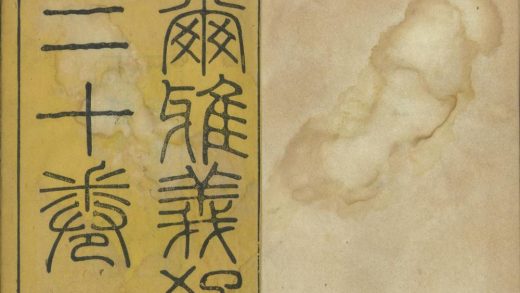 爾雅義疏
二十卷